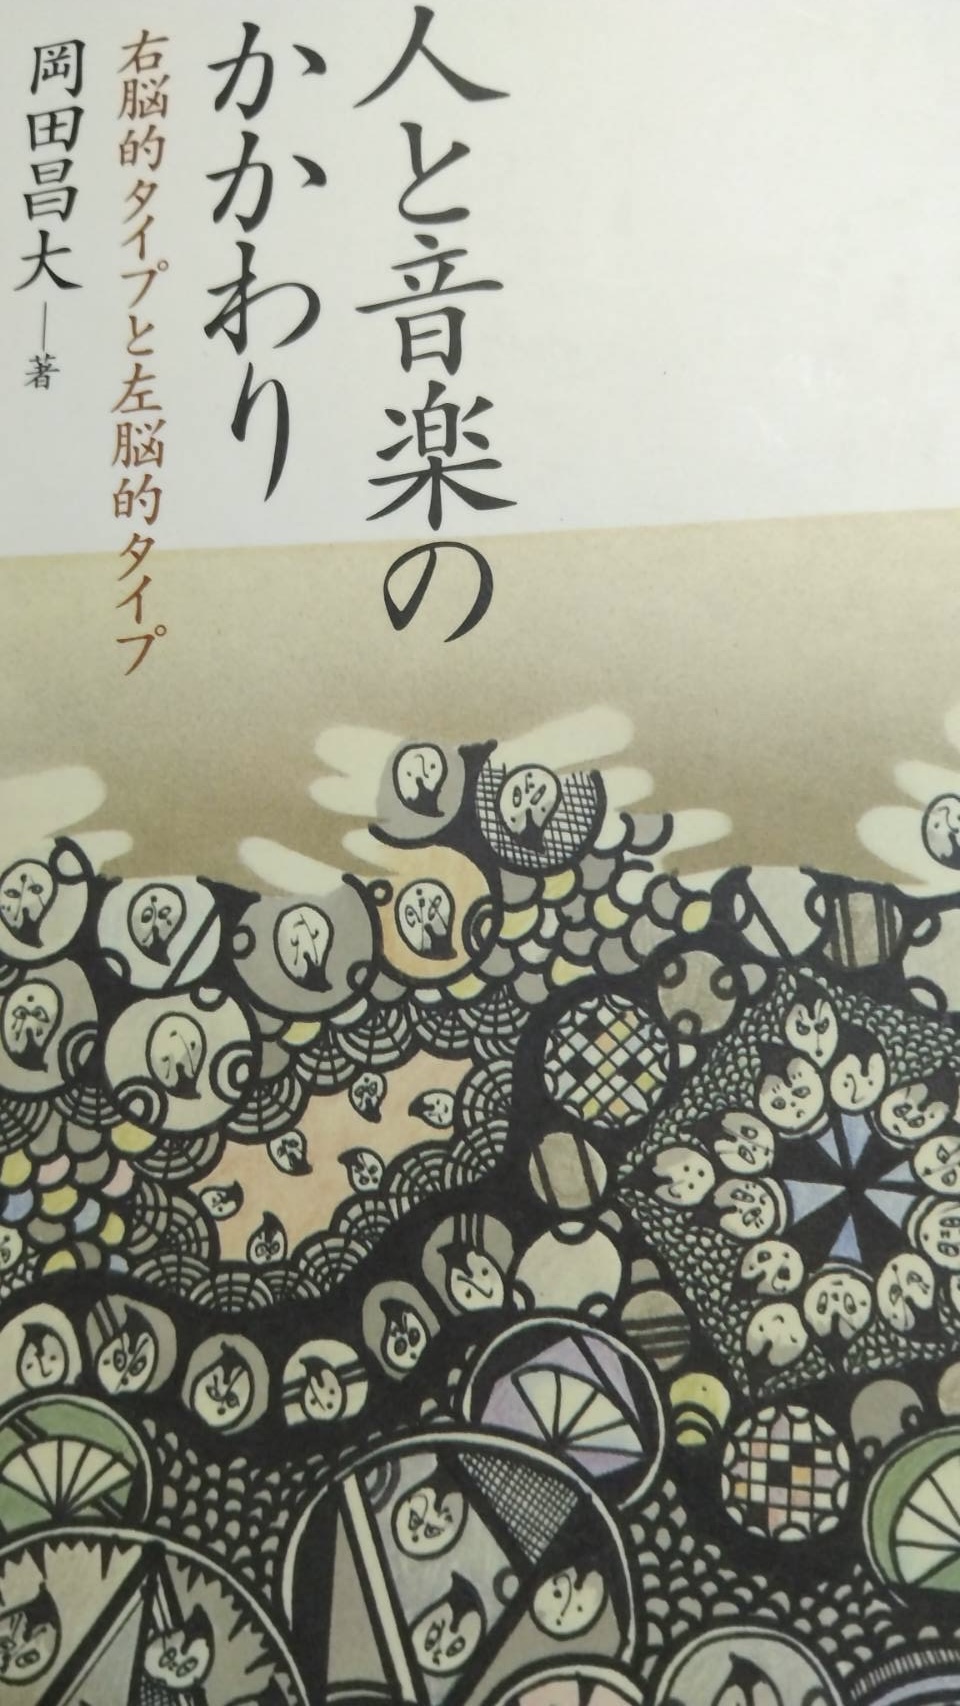 人と音楽の
かかわり
右脳的タイプと左脳的タイプ
岡田昌大―著